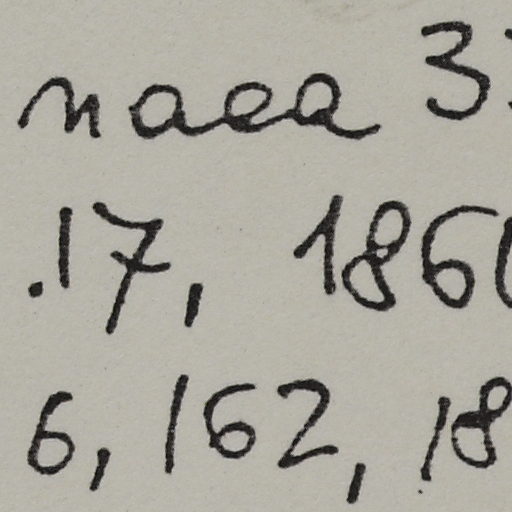 maea 3
.17, 186
6, 162, 18